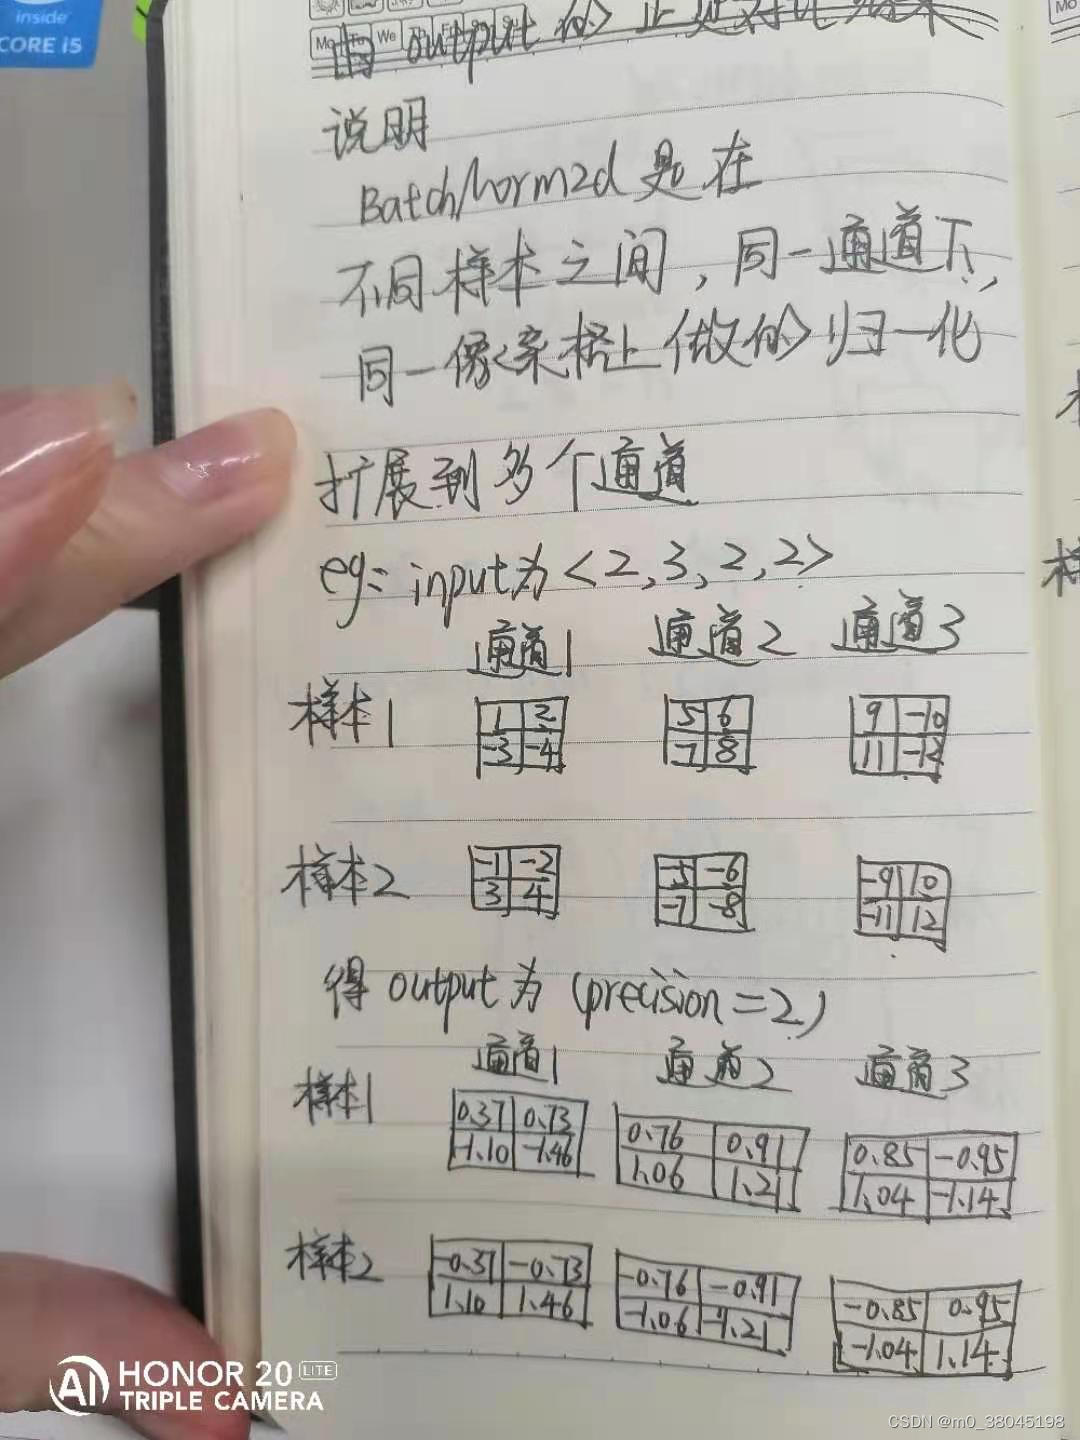 inside
CORE i5
Mo Tu We
output 的
Mo
说明
BatchNorm2d 是在
不同样本之间，同一通道下，
同一像素格上做的归一化
扩展到多个通道
eg: input为<2,3,2,2>
通道1 通道2 通道3
样本1
1 2 5 6 9 -10
-3 -4 -7 8 11 -12
样本2
-1 -2 -5 -6 -9 10
3 4 -7 -8 -11 12
得 output为 (precision=2)
通道1 通道2 通道3
样本1
0.37 0.73 0.76 0.91 0.85 -0.95
-1.10 -1.46 1.06 1.21 1.04 -1.14
样本2
-0.37 -0.73 -0.76 -0.91 -0.85 0.95
1.10 1.46 -1.06 -1.21 -1.04 1.14
HONOR 20 LITE
TRIPLE CAMERA
CSDN @m0_38045198